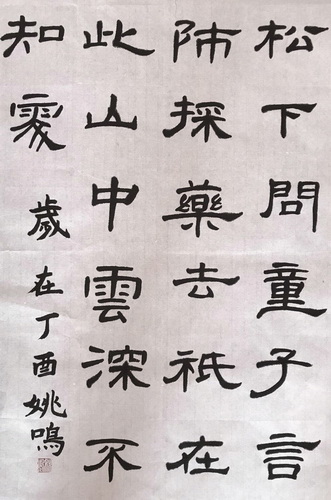 松下問童子言
師採藥去祇在
此山中雲深不
知處
歲在丁酉姚鳴